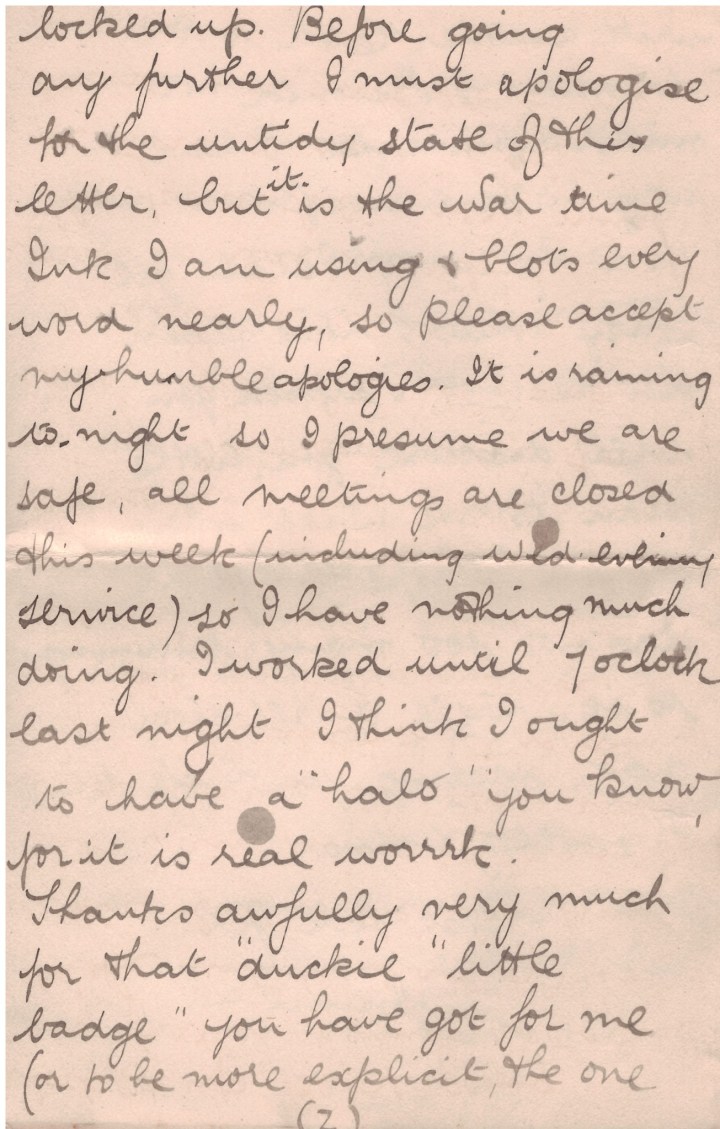 locked up. Before going
any further I must apologise
for the untidy state of this
letter, but it. is the War time
Ink I am using & blots every
word nearly, so please accept
my humble apologies. It is raining
to-night so I presume we are
safe, all meetings are closed
this week (including wed. evening
service) so I have nothing much
doing. I worked until 7 oclock
last night I think I ought
to have a "halo" you know,
for it is real worrrk.
Thanks awfully very much
for that "duckie" little
badge" you have got for me
(or to be more explicit, the one
(2)